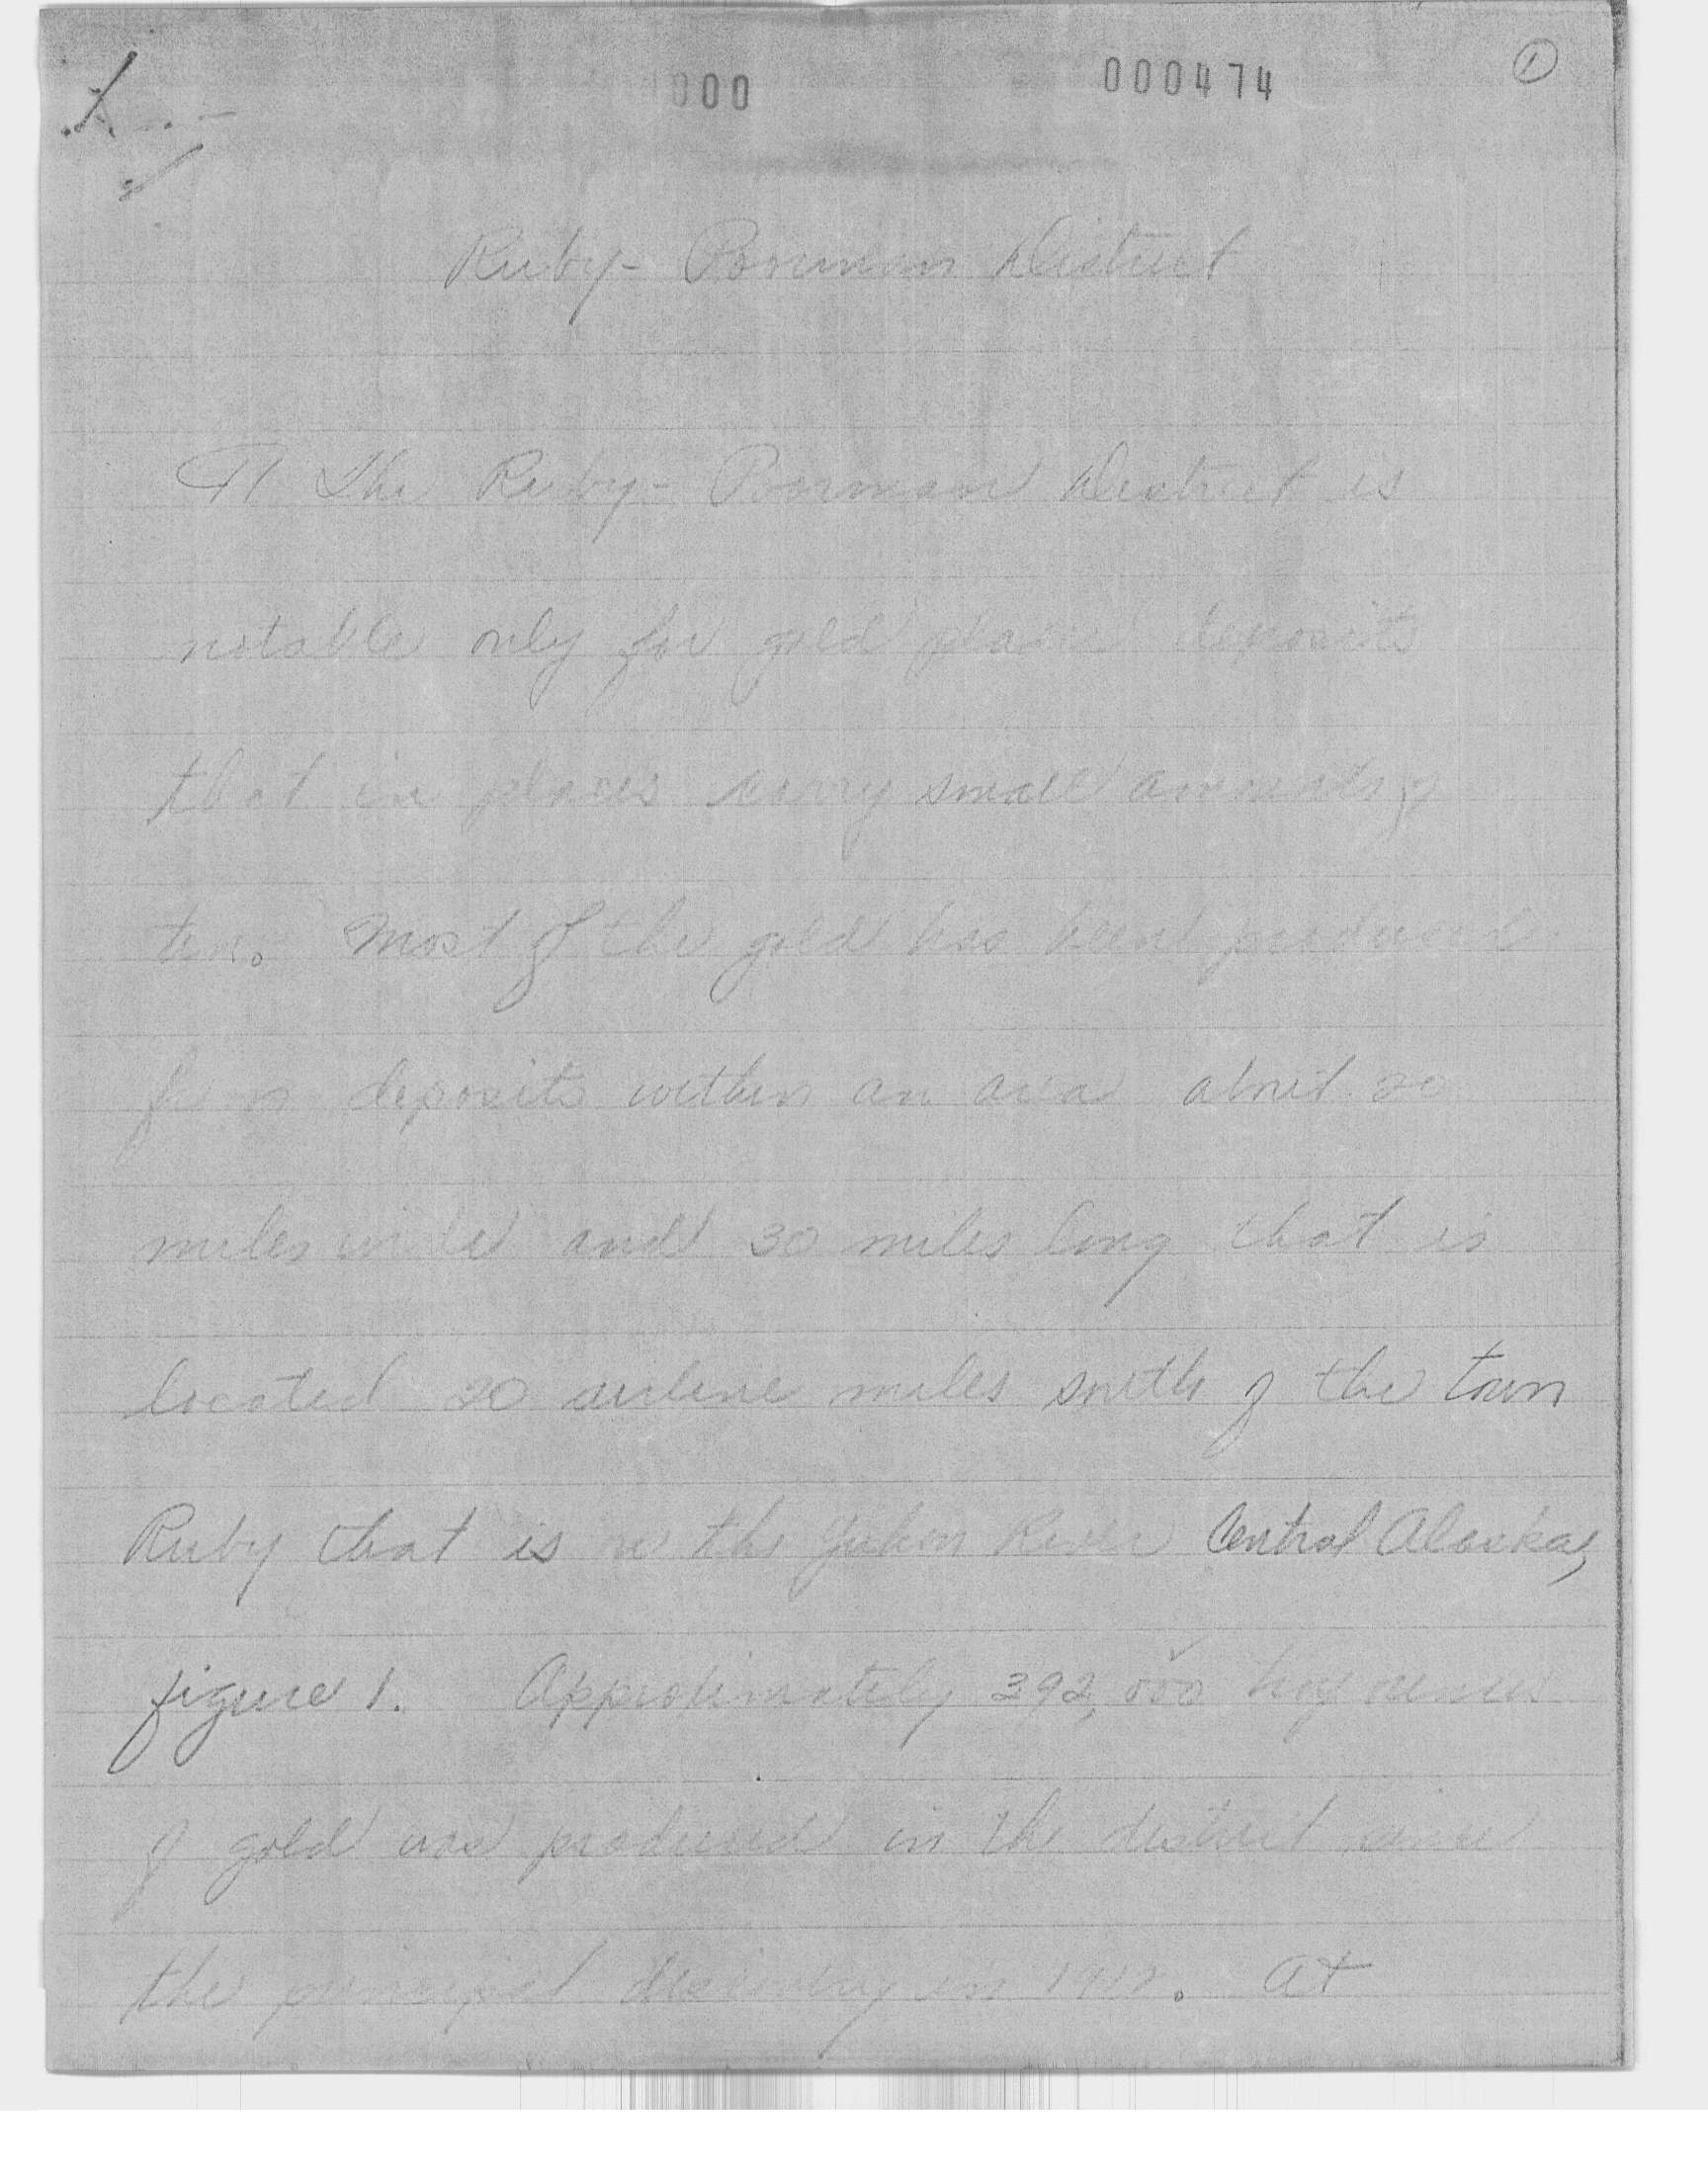 000 000474 1
Ruby - Poorman District
¶ The Ruby - Poorman District is
notable only for gold placer deposits
that in places carry small amounts of
tin. Most of the gold has been produced
from deposits within an area about 20
miles wide and 30 miles long that is
located 20 airline miles south of the town
Ruby that is on the Yukon River Central Alaska,
figure 1. Approximately 392,000 troy ounces
of gold was produced in the district since
the principal discovery in At